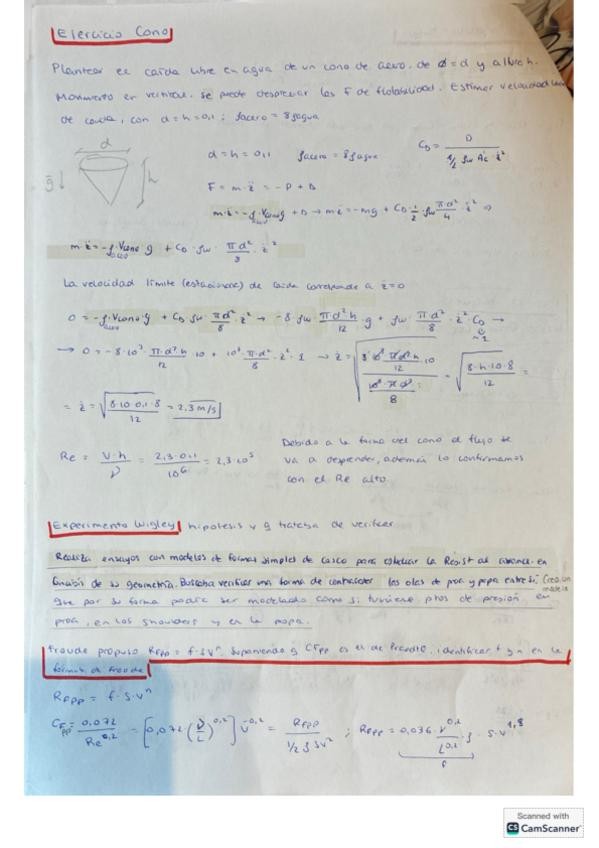 Ejercicio Cono
Plantear el caída libre en agua de un cono de acero. de Ø=d y altura h.
Movimiento en vertical. Se puede despreciar las F de flotabilidad. Estimar velocidad
de caída, con d=h=0,1 ; ρacero = 8ρagua
d
g ↓
h
d=h=0,1 ρacero = 8ρagua
C_D = D / (1/2 ρw Ac ż²)
F = m·z̈ = -P + D
m·z̈ = -ρ_acero·Vcono·g + D → m·z̈ = -mg + C_D·1/2·ρw·(πd²/4)·ż² ⇒
m·z̈ = -ρ_acero·Vcono·g + C_D·ρw·(πd²/8)·ż²
La velocidad límite (estacionaria) de caída corresponde a z̈=0
0 = -ρ_acero·Vcono·g + C_D·ρw·(πd²/8)·ż² → -8ρw·(πd²h/12)·g + ρw·(πd²/8)·ż²·C_D →
~1
→ 0 = -8·10³·(π·d²h/12)·10 + 10³·(πd²/8)·ż²·1 → ż = √((8·10³·πd²h·10/12) / (10³·πd²/8)) = √(8·h·10·8/12) =
= ż = √(8·10·0,1·8/12) = 2,3 m/s
Re = V·h/ν = 2,3·0,1/10⁻⁶ = 2,3·10⁵
Debido a la forma del cono el flujo se
va a desprender, además lo confirmamos
con el Re alto.
Experimento Wigley hipótesis y q trataba de verificar
Realiza ensayos con modelos de formas simples de casco para estudiar la Resist al avance en
función de su geometría. Buscaba verificar una forma de contrarrestar las olas de proa y popa entre sí.
que por su forma podía ser modelado como si tuviese ptos de presión en
proa, en los shoulders y en la popa.
Froude propuso R_FPP = f·S·Vⁿ. Suponiendo q C_FPP es el de Prandtl, identificar f y n en la
fórmula de Froude
R_FPP = f·S·Vⁿ
C_FPP = 0,072/Re^0,2 = [0,072·(ν/L)^0,2] V^-0,2 = R_FPP/(1/2 ρSV²) ; R_FPP = 0,036·(ν^0,2/L^0,2)·ρ·S·V^1,8
f
Scanned with
CS CamScanner